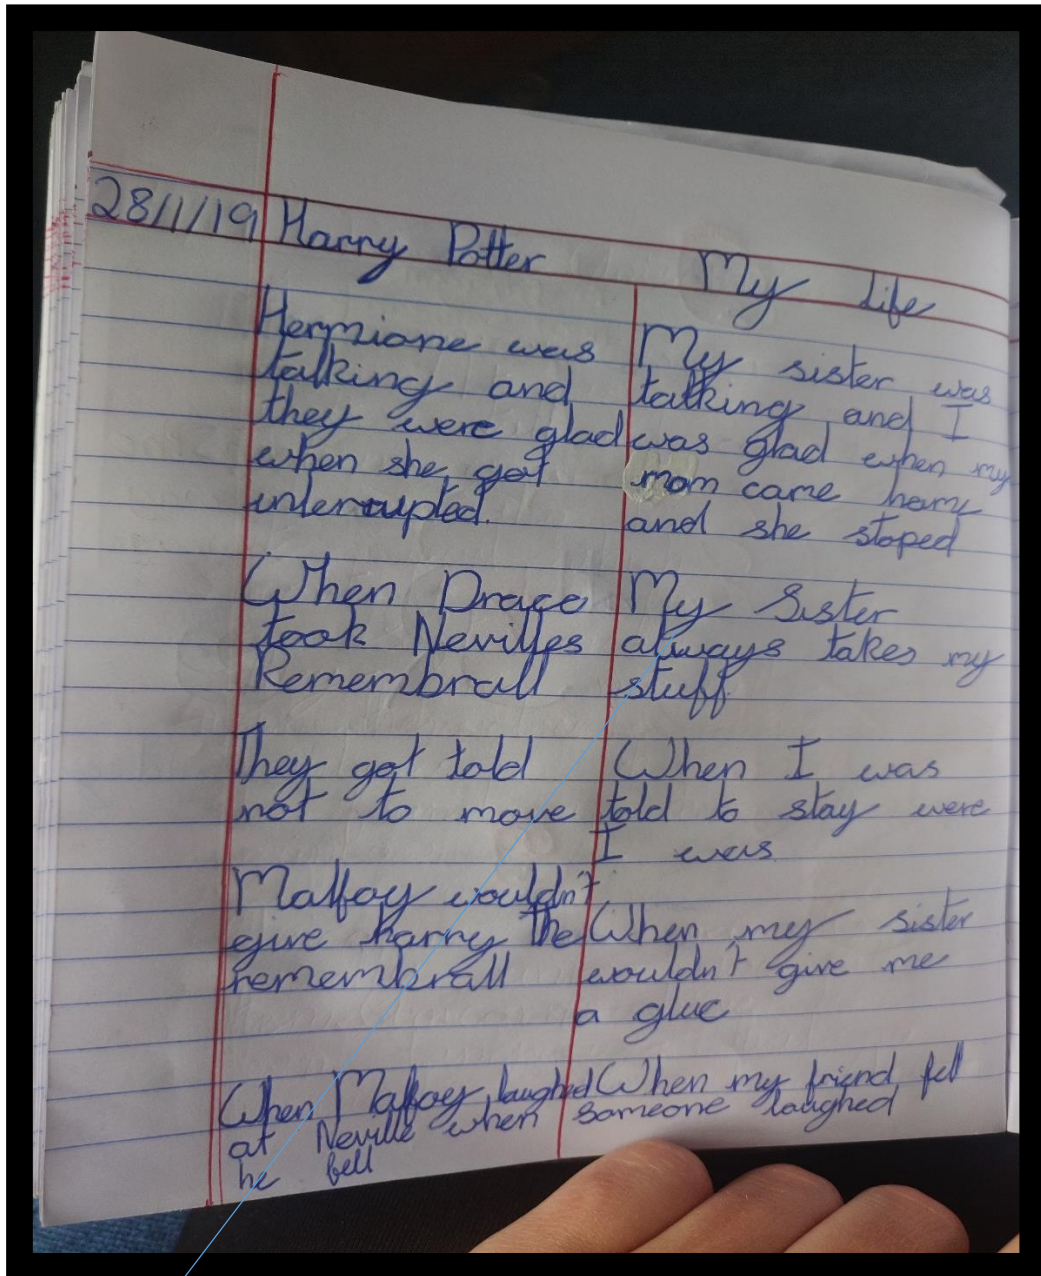 28/1/19 Harry Potter My Life
Hermione was
talking and
they were glad
when she got
interrupted.
My sister was
talking and I
was glad when my
mom came home
and she stoped
When Draco
took Nevilles
Remembrall
My Sister
always takes my
stuff.
They got told
not to move
When I was
told to stay were
I was
Malfoy wouldn't
give harry the
remembrall
When my sister
wouldn't give me
a glue
When Malfoy laughed
at Neville when
he fell
When my friend fell
someone laughed